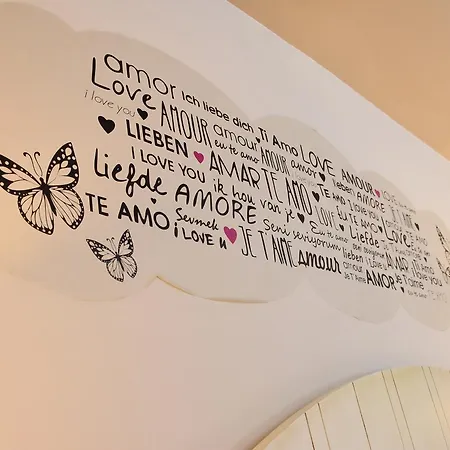 amor Ich liebe dich Ti Amo LOVE AMOUR
Love AMOUR amour AMOUR amor
i love you eu te amo
LIEBEN AMAR TE AMO LOVE
I LOVE YOU ik hou van je
Liefde AMORE Eu te amo Liefde
TE AMO Sevmek Seni seviyorum
i LOVE u JE T'AIME amour
lieben AMORE JE T'AIME
TE AMO I LOVE YOU
EU TE AMO LOVE TE AMO
lieben I LOVE U AMAR Ti Amo
amour amor Je t'aime
Je T'Aime AMOR